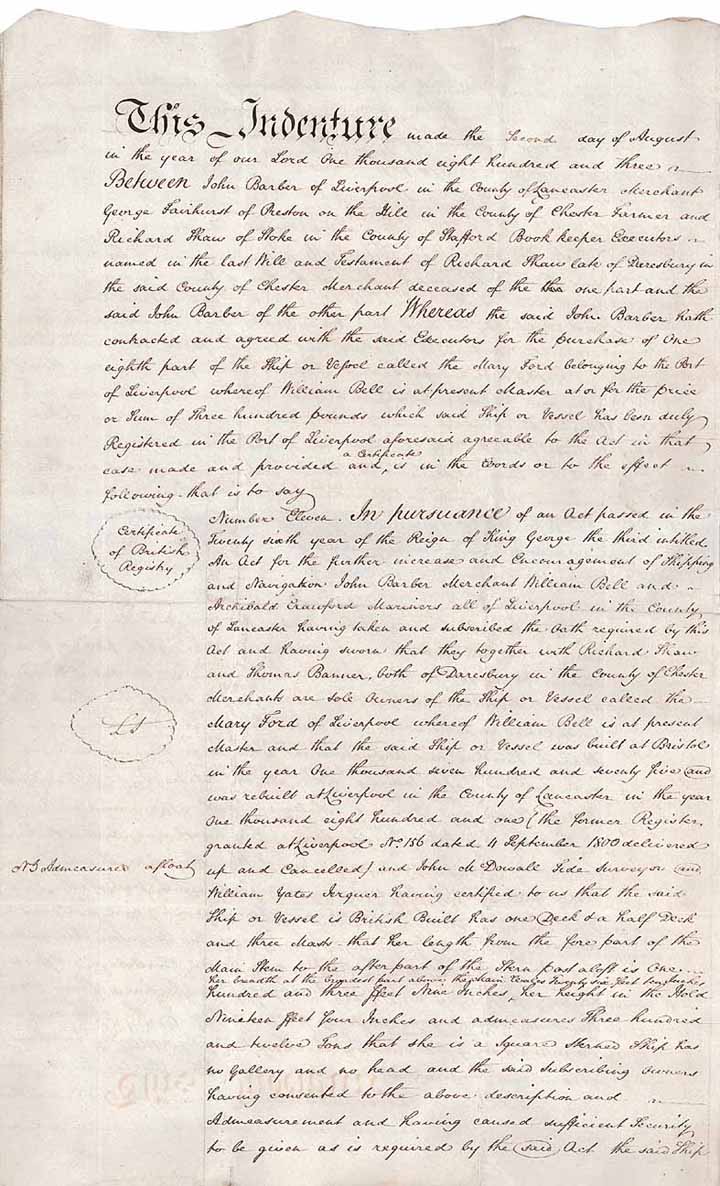 This Indenture made the Second day of August
in the year of our Lord One thousand eight hundred and three
Between John Barber of Liverpool in the County of Lancaster Merchant
George Fairhurst of Preston on the Hill in the County of Chester Farmer and
Richard Shaw of Stoke in the County of Stafford Book keeper Executors
named in the last Will and Testament of Richard Shaw late of Daresbury in
the said County of Chester Merchant deceased of the one part and the
said John Barber of the other part Whereas the said John Barber hath
contracted and agreed with the said Executors for the purchase of One
eighth part of the Ship or Vessel called the Mary Ford belonging to the Port
of Liverpool whereof William Bell is at present Master at or for the price
or Sum of Three hundred pounds which said Ship or Vessel has been duly
Registered in the Port of Liverpool aforesaid agreable to the Act in that
case made and provided and a Certificate is in the Words or to the effect
following that is to say
Certificate
of British
Registry
Number Eleven. In pursuance of an Act passed in the
Twenty sixth year of the Reign of King George the third intitled
An Act for the further increase and Encouragement of Shipping
and Navigation John Barber Merchant William Bell and
Archibald Crawford Mariners all of Liverpool in the County
of Lancaster having taken and subscribed the Oath required by this
Act and having sworn that they together with Richard Shaw
and Thomas Banner, both of Daresbury in the County of Chester
Merchants are sole Owners of the Ship or Vessel called the
Mary Ford of Liverpool whereof William Bell is at present
Master and that the said Ship or Vessel was built at Bristol
in the year One thousand seven hundred and seventy five and
was rebuilt at Liverpool in the County of Lancaster in the year
One thousand eight hundred and one (the former Register,
granted at Liverpool No. 156 dated 4 September 1800 delivered
up and Cancelled) and John McDowall Tide surveyor and
William Yates Jerquer having certified to us that the said
Ship or Vessel is British Built has one Deck & a half Deck
and three Masts that her length from the fore part of the
Main Stem to the afterpart of the Stern post aloft is One
hundred and three ffeet Nine Inches, her breadth at the broadest part above the Main Wales Twenty six feet ten Inches her height in the Hold
Nineteen ffeet four Inches and admeasures Three hundred
and twelve Tons that she is a Square Sterned Ship has
no Gallery and no head and the said Subscribing Owners
having consented to the above description and
Admeasurement and having caused sufficient Security
to be given as is required by the said Act the said Ship
LS
NB Admeasured afloat